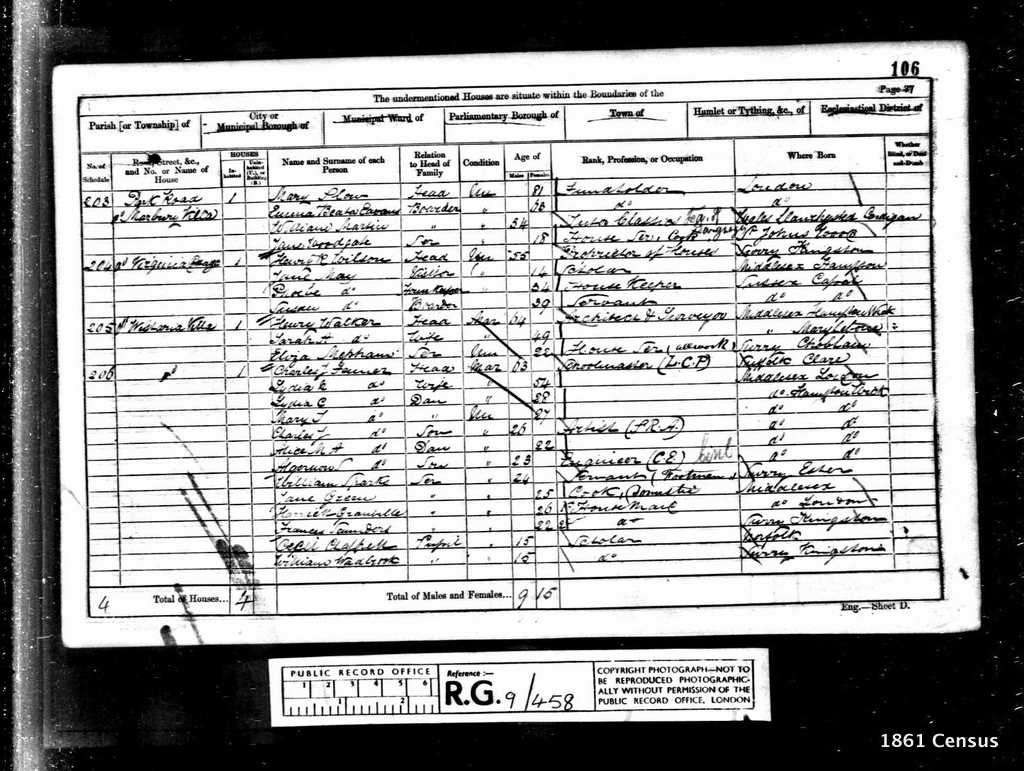 106
Page 27
The undermentioned Houses are situate within the Boundaries of the
Parish [or Township] of
City or Municipal Borough of
Municipal Ward of
Parliamentary Borough of
Town of
Hamlet or Tything, &c., of
Ecclesiastical District of
No. of Schedule
Road, Street, &c., and No. or Name of House
HOUSES
Inhabited
Uninhabited (U.), or Building (B.)
Name and Surname of each Person
Relation to Head of Family
Condition
Age of
Males
Females
Rank, Profession, or Occupation
Where Born
Whether Blind, or Deaf-and-Dumb
203 Park Road 1 Mary Head Un 81 Fundholder London
Emma Boarder " do do
William Martin " 34 Tutor Classics Cardigan
Jane Woodgate Ser " 18 House Ser, Cook St Johns Wood
204 Virginia 1 Henry R Wilson Head Un 55 Proprietor of Houses Surry Kingston
Jane May Visitor 14 Scholar Middlesex Hampton
Phoebe do House Keeper " 34 House Keeper Sussex
do 39 Servant do do
205 Victoria Villa 1 Henry Walker Head Mar 64 Architect & Surveyor Middlesex Hampton Wick
Sarah A do Wife " 49 " Marylebone
Eliza Ser Un 22 House Ser (allwork) Surry Chobham
206 do 1 Charles J Head Mar 63 Schoolmaster (L.C.P) Suffolk Clare
Lydia E do Wife " 54 Middlesex London
Lydia C do Dau " 28 do Hampton Wick
Mary do " Un 27 do do
Charles do Son " 26 Artist do do
Alice M A do Dau " 22 do do
Algernon do Son " 23 Engineer (C.E) do do
William Ser " 24 Servant (Footman) Surry Esher
Jane Green " " 25 Cook, (Domestic Middlesex
" " 26 House Maid do London
Frances Saunders " " 22 do Surry Kingston
Cecil Pupil " 15 Scholar Norfolk
William " " 15 do Surry Kingston
4 Total of Houses... 4 Total of Males and Females... 9 15
Eng.—Sheet D.
PUBLIC RECORD OFFICE
1 2 3 4 5 6
1 2
Reference:—
R.G. 9/458
COPYRIGHT PHOTOGRAPH—NOT TO
BE REPRODUCED PHOTOGRAPHIC-
ALLY WITHOUT PERMISSION OF THE
PUBLIC RECORD OFFICE, LONDON
1861 Census